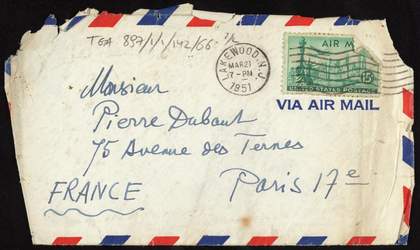 TGA 897/1/1/142/66
LAKEWOOD, N.J.
MAR 21
7-PM
1951
AIR M
15¢
UNITED STATES POSTAGE
VIA AIR MAIL
Monsieur
Pierre Dabout
75 Avenue des Ternes
Paris 17e
FRANCE